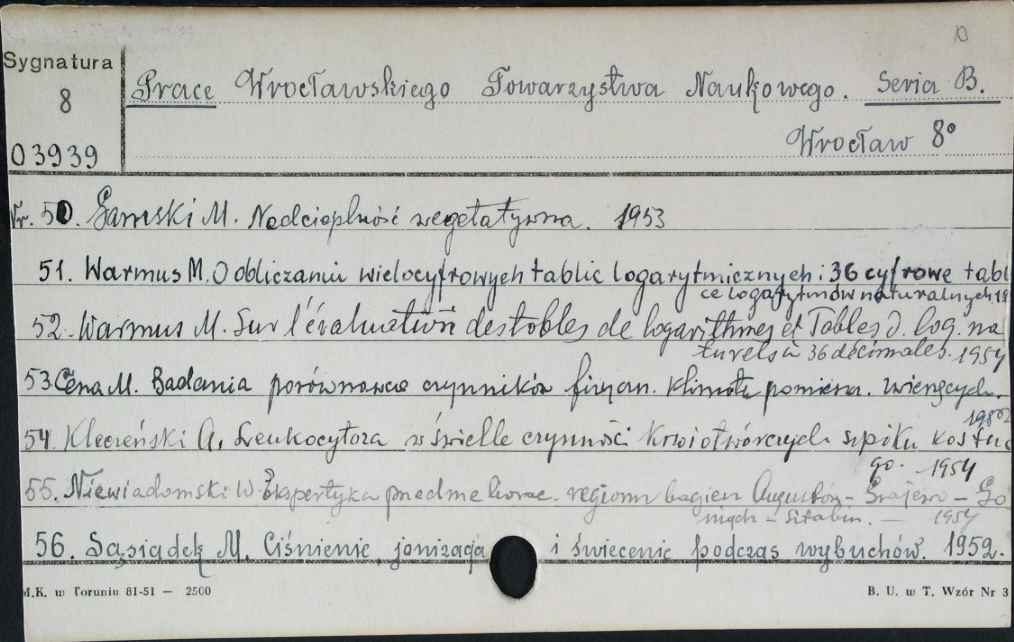 Sygnatura
8
03939
Prace Wrocławskiego Towarzystwa Naukowego. Seria B.
Wrocław 8°
Nr. 50. Gamski M. Nadcieplność wegetatywna. 1953
51. Warmus M. O obliczaniu wielocyfrowych tablic logarytmicznych i 36 cyfrowe tabl
ce logarytmów naturalnych 19
52. Warmus M. Sur l'évaluation des tables de logarithmes et Tables d. log. na
turels à 36 décimales. 1954
53 Cena M. Badania porównawcze czynników fizjan. klimatu pomieszcz. zwierzęcych.
54. Kleczeński A. Leukocytoza w świetle czynności krwiotwórczych szpiku kostne
go. 1954
55. Niewiadomski W. Ekspertyka przedmeliorac. regionu bagien Augustów - Grajewo - Go
niądz - Sztabin. - 1954
56. Sąsiadek M. Ciśnienie, jonizacja i świecenie podczas wybuchów. 1952.
M.K. w Toruniu 81-51 — 2500
B. U. w T. Wzór Nr 3